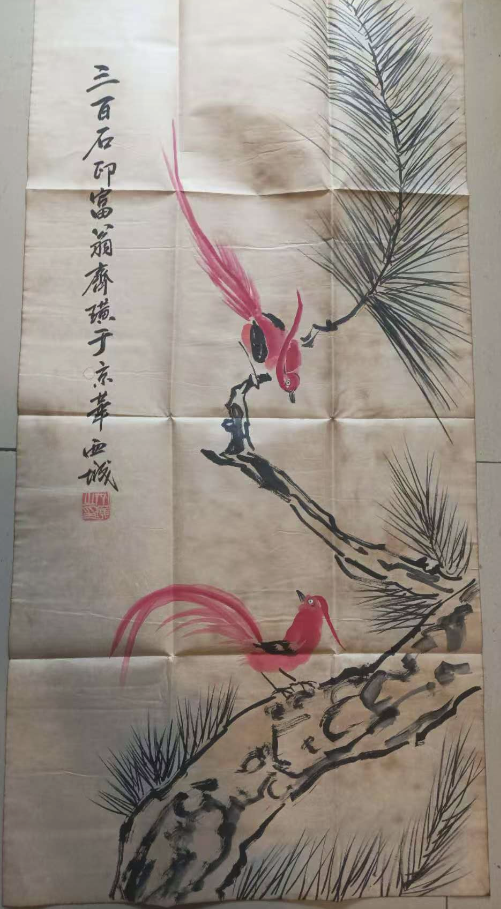 三百石印富翁齊璜于京華西城